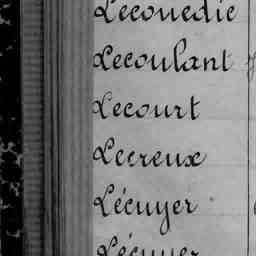 Lecouedic
Lecoulant
Lecourt
Lecreux
Lécuyer
Lécuyer